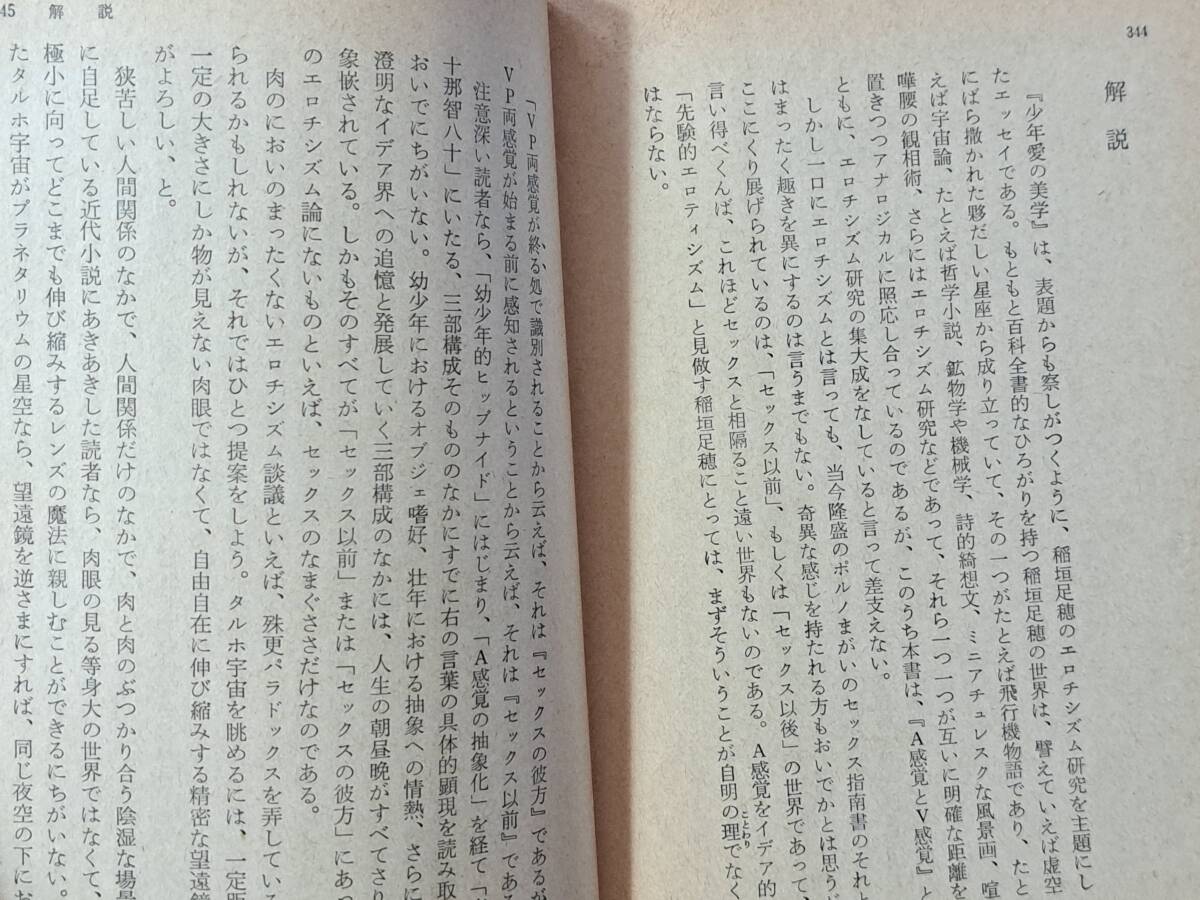 344
解説
『少年愛の美学』は、表題からも察しがつくように、稲垣足穂のエロチシズム研究を主題にし
たエッセイである。もともと百科全書的なひろがりを持つ稲垣足穂の世界は、譬えていえば虚空
にばら撒かれた夥だしい星座から成り立っていて、その一つがたとえば飛行機物語であり、たと
えば宇宙論、たとえば哲学小説、鉱物学や機械学、詩的綺想文、ミニアチュレスクな風景画、喧
嘩腰の観相術、さらにはエロチシズム研究などであって、それら一つ一つが互いに明確な距離を
置きつつアナロジカルに照応し合っているのであるが、このうち本書は、『A感覚とV感覚』と
ともに、エロチシズム研究の集大成をなしていると言って差支えない。
しかし一口にエロチシズムとは言っても、当今隆盛のポルノまがいのセックス指南書のそれと
はまったく趣きを異にするのは言うまでもない。奇異な感じを持たれる方もおいでかとは思うが
ここにくり展げられているのは、「セックス以前」、もしくは「セックス以後」の世界であって、
言い得べくんば、これほどセックスと相隔ること遠い世界もないのである。A感覚をイデア的
「先験的エロティシズム」と見做す稲垣足穂にとっては、まずそういうことが自明の理でなく
ことわり
はならない。
45 解説
「VP両感覚が終る処で識別されることから云えば、それは『セックスの彼方』であるが
VP両感覚が始まる前に感知されるということから云えば、それは『セックス以前』であ
注意深い読者なら、「幼少年的ヒップナイド」にはじまり、「A感覚の抽象化」を経て「
十那智八十」にいたる、三部構成そのもののなかにすでに右の言葉の具体的顕現を読み取
おいでにちがいない。幼少年におけるオブジェ嗜好、壮年における抽象への情熱、さらに
澄明なイデア界への追憶と発展していく三部構成のなかには、人生の朝昼晩がすべてさり
象嵌されている。しかもそのすべてが「セックス以前」または「セックスの彼方」にあっ
のエロチシズム論にないものといえば、セックスのなまぐささだけなのである。
肉のにおいのまったくないエロチシズム談議といえば、殊更パラドックスを弄してい
られるかもしれないが、それではひとつ提案をしよう。タルホ宇宙を眺めるには、一定距
一定の大きさにしか物が見えない肉眼ではなくて、自由自在に伸び縮みする精密な望遠鏡
がよろしい、と。
狭苦しい人間関係のなかで、人間関係だけのなかで、肉と肉のぶつかり合う陰湿な場景
に自足している近代小説にあきあきした読者なら、肉眼の見る等身大の世界ではなくて、
極小に向ってどこまでも伸び縮みするレンズの魔法に親しむことができるにちがいない。
たタルホ宇宙がプラネタリウムの星空なら、望遠鏡を逆さまにすれば、同じ夜空の下にお